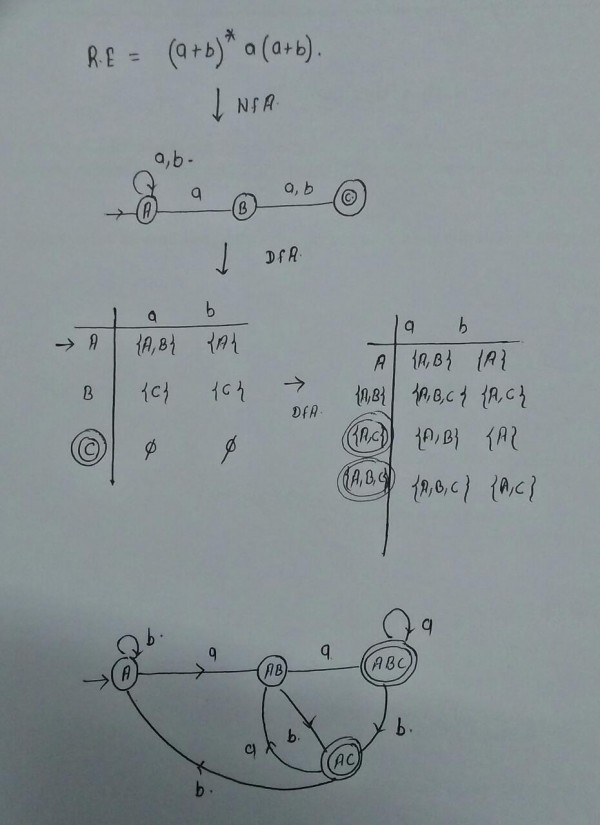 R.E = (a+b)* a(a+b).
↓ NfA.
a,b.
a
a, b
A
B
C
↓ DfA.
a b
→ A {A,B} {A}
B {C} {C}
C ϕ ϕ
→
DfA.
a b
A {A,B} {A}
{A,B} {A,B,C} {A,C}
{A,C} {A,B} {A}
{A,B,C} {A,B,C} {A,C}
b.
a
a
a
A
AB
ABC
a
b.
b.
AC
b.